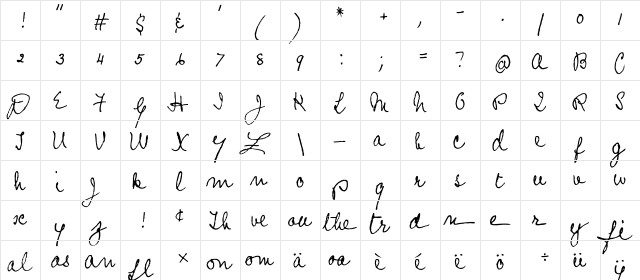 ! " # $ & ' ( ) * + , - . / 0 1
2 3 4 5 6 7 8 9 : ; = ? @ A B C
D E F G H I J K L M N O P Q R S
T U V W X Y Z \ – a b c d e f g
h i j k l m n o p q r s t u v w
x y z ! ¢ Th ve ou the tr d n e r y fi
al as an fl × on om ä oa è é ë ö ÷ ü ü